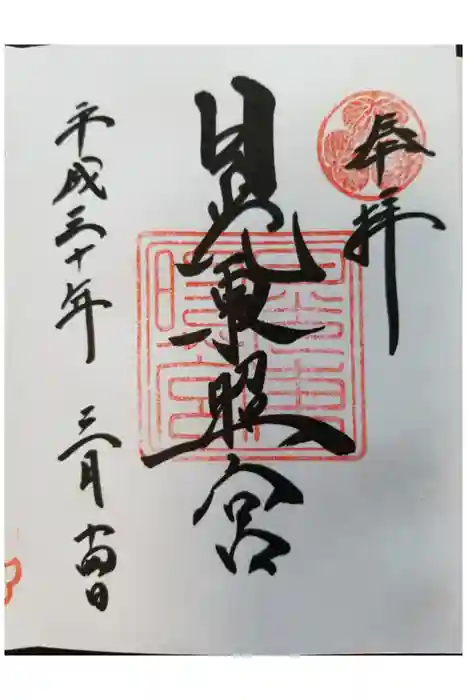 奉拝
日光東照宮
平成三十年 三月 十四日